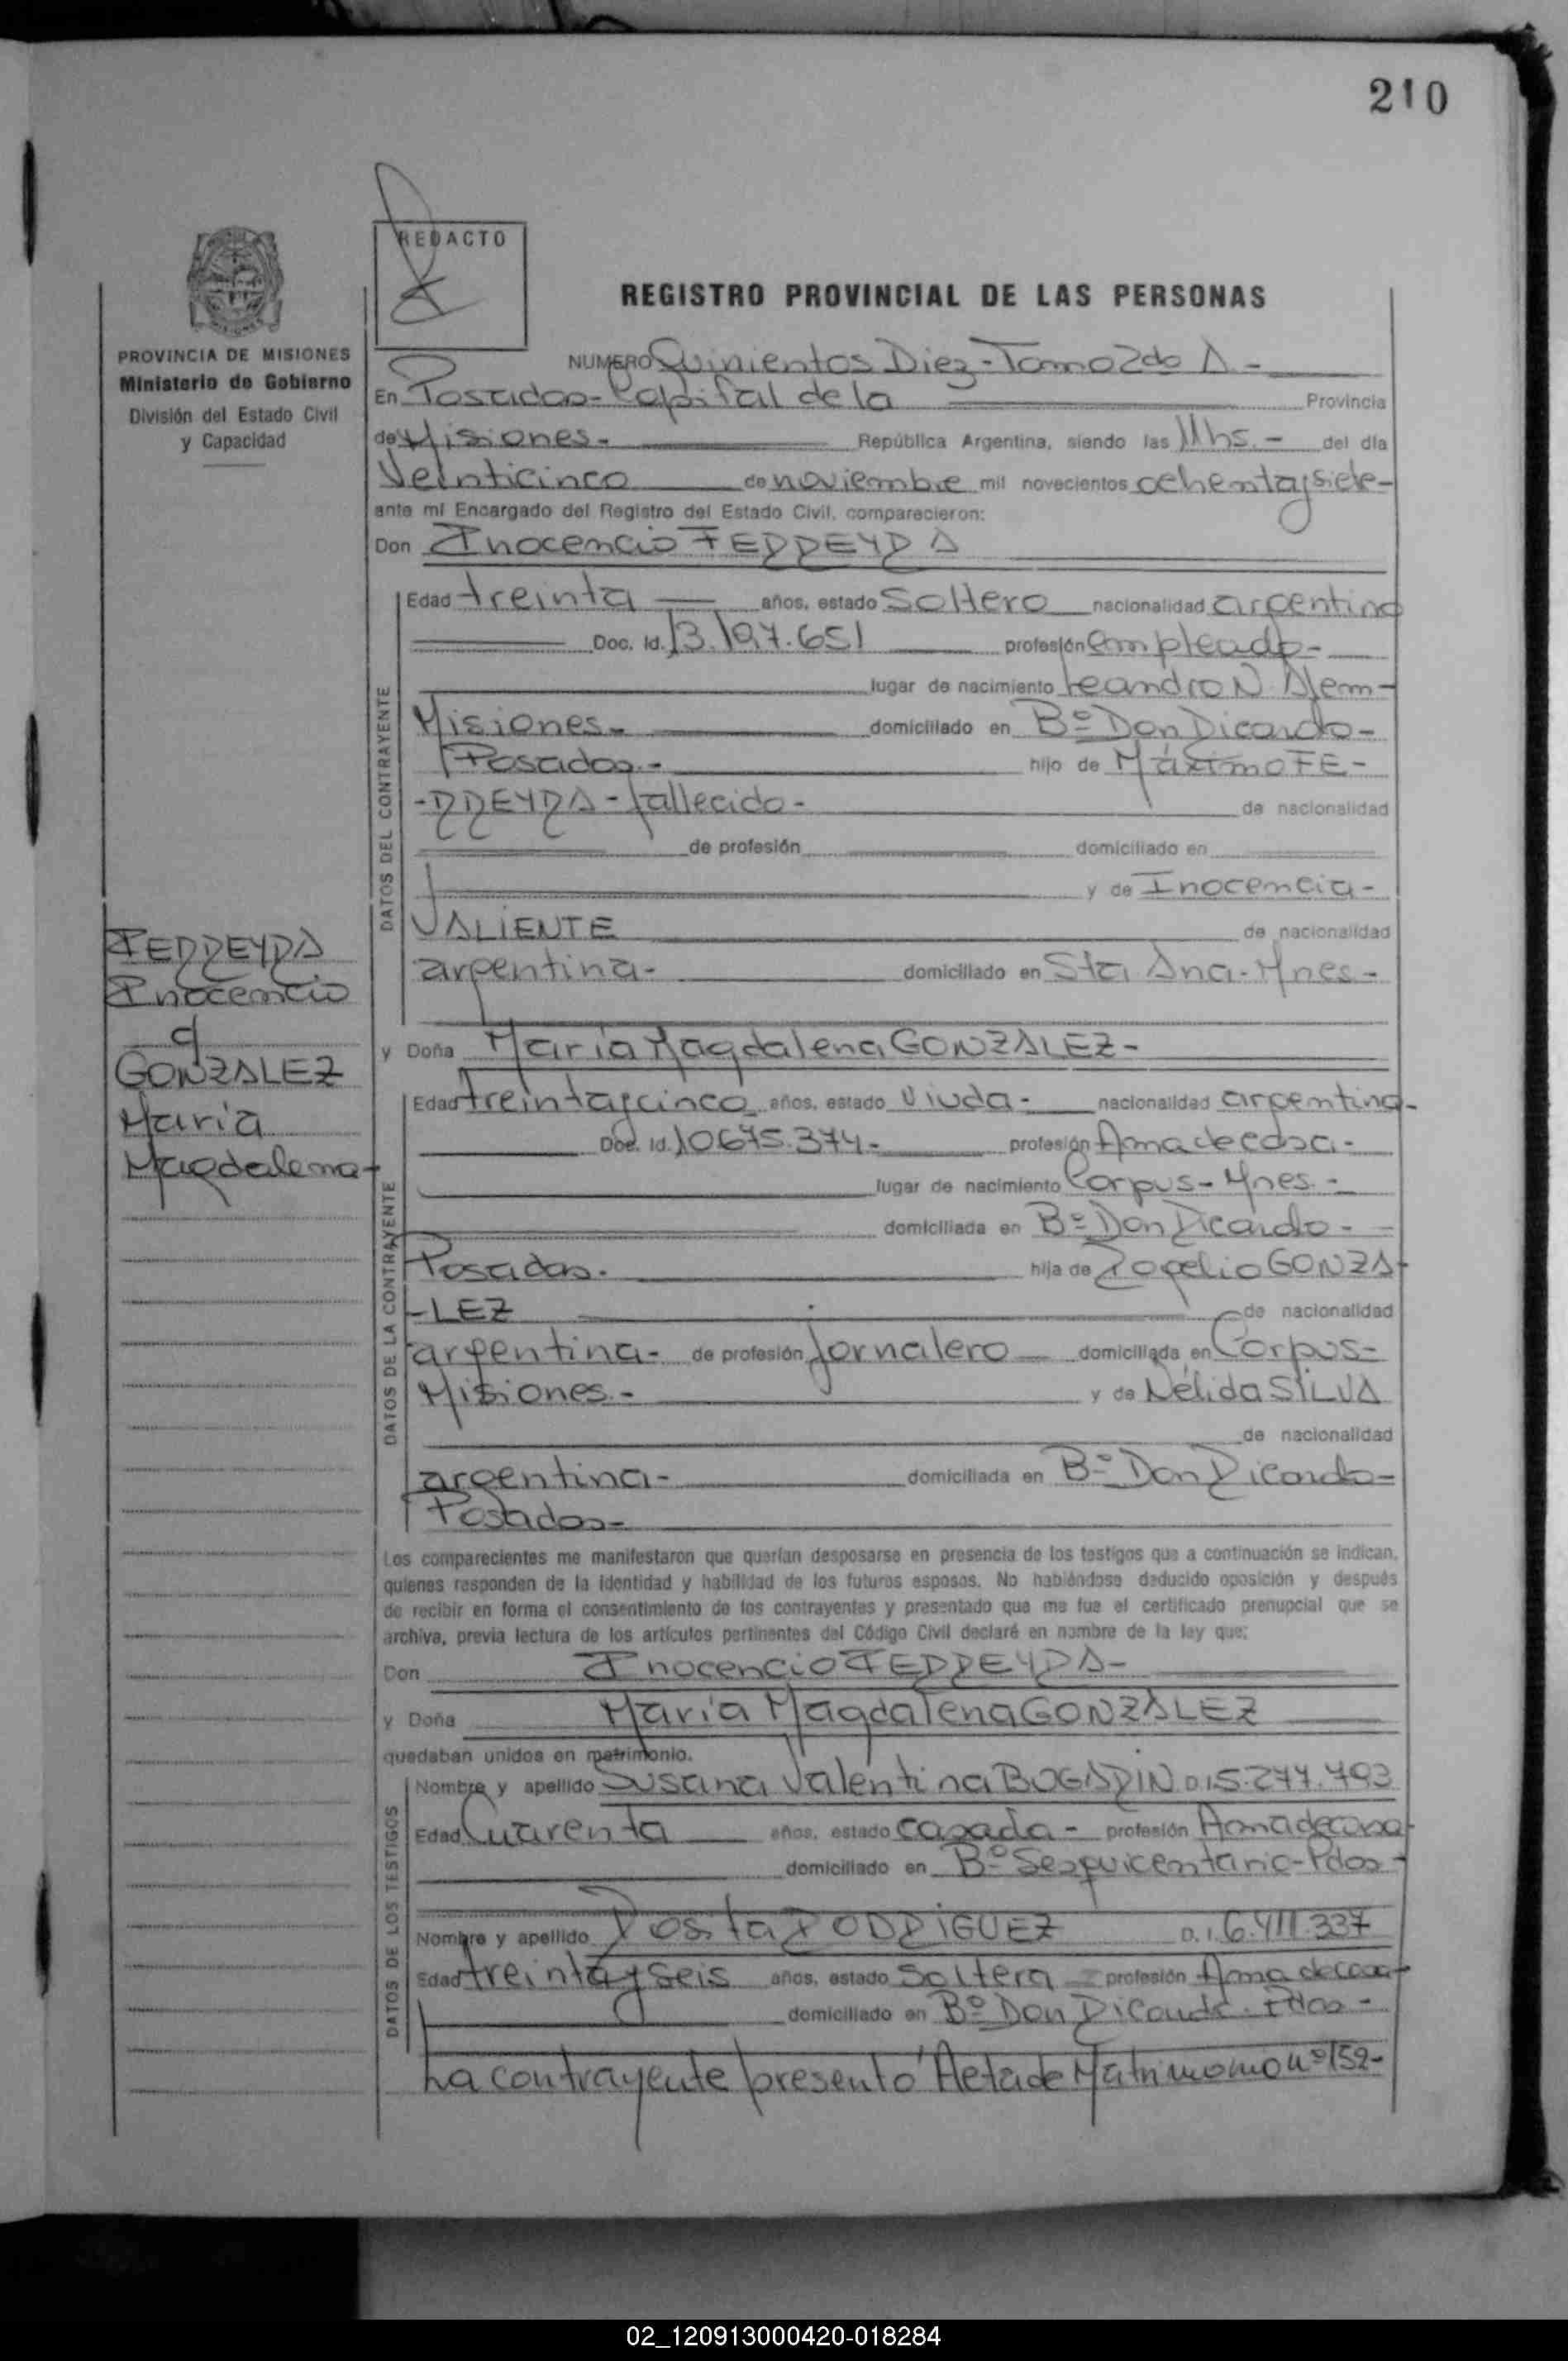 210
REDACTO
REGISTRO PROVINCIAL DE LAS PERSONAS
PROVINCIA DE MISIONES
Ministerio de Gobierno
División del Estado Civil
y Capacidad
NUMERO Quinientos Diez - Tomo 2do A -
En Posadas - Capital de la Provincia
de Misiones - República Argentina, siendo las 11 hs. - del día
Veinticinco de noviembre mil novecientos ochenta y siete -
ante mí Encargado del Registro del Estado Civil, comparecieron:
Don Inocencio FERREYRA
DATOS DEL CONTRAYENTE
Edad treinta años, estado Soltero nacionalidad argentino
Doc. Id. 13.197.651 profesión empleado -
lugar de nacimiento Leandro N. Alem -
Misiones - domiciliado en Bº Don Ricardo -
Posadas - hijo de Máximo FE-
-RREYRA - fallecido - de nacionalidad
de profesión domiciliado en
y de Inocencia -
VALIENTE de nacionalidad
argentina - domiciliado en Sta Ana - Mnes -
FERREYRA
Inocencio
c/
GONZALEZ
María
Magdalena -
y Doña María Magdalena GONZALEZ -
DATOS DE LA CONTRAYENTE
Edad treinta y cinco años, estado Viuda - nacionalidad argentina -
Doc. Id. 10675.374 - profesión Ama de casa -
lugar de nacimiento Corpus - Mnes. -
domiciliada en Bº Don Ricardo -
Posadas - hija de Rogelio GONZA-
-LEZ de nacionalidad
argentina - de profesión jornalero domiciliada en Corpus -
Misiones - y de Nélida SILVA
de nacionalidad
argentina - domiciliada en Bº Don Ricardo -
Posadas -
Los comparecientes me manifestaron que querían desposarse en presencia de los testigos que a continuación se indican,
quienes responden de la identidad y habilidad de los futuros esposos. No habiéndose deducido oposición y después
de recibir en forma el consentimiento de los contrayentes y presentado que me fue el certificado prenupcial que se
archiva, previa lectura de los artículos pertinentes del Código Civil declaré en nombre de la ley que:
Don Inocencio FERREYRA -
y Doña María Magdalena GONZALEZ
quedaban unidos en matrimonio.
DATOS DE LOS TESTIGOS
Nombre y apellido Susana Valentina BOGARIN D.I 5.277.793
Edad Cuarenta años, estado casada - profesión Ama de casa -
domiciliado en Bº Sesquicentario - Pdas -
Nombre y apellido Rosita RODRIGUEZ D.I. 6.411.337
Edad treinta y seis años, estado Soltera profesión Ama de casa -
domiciliado en Bº Don Ricardo - Pdas -
La contrayente presentó Acta de Matrimonio nº 152 -
02_120913000420-018284